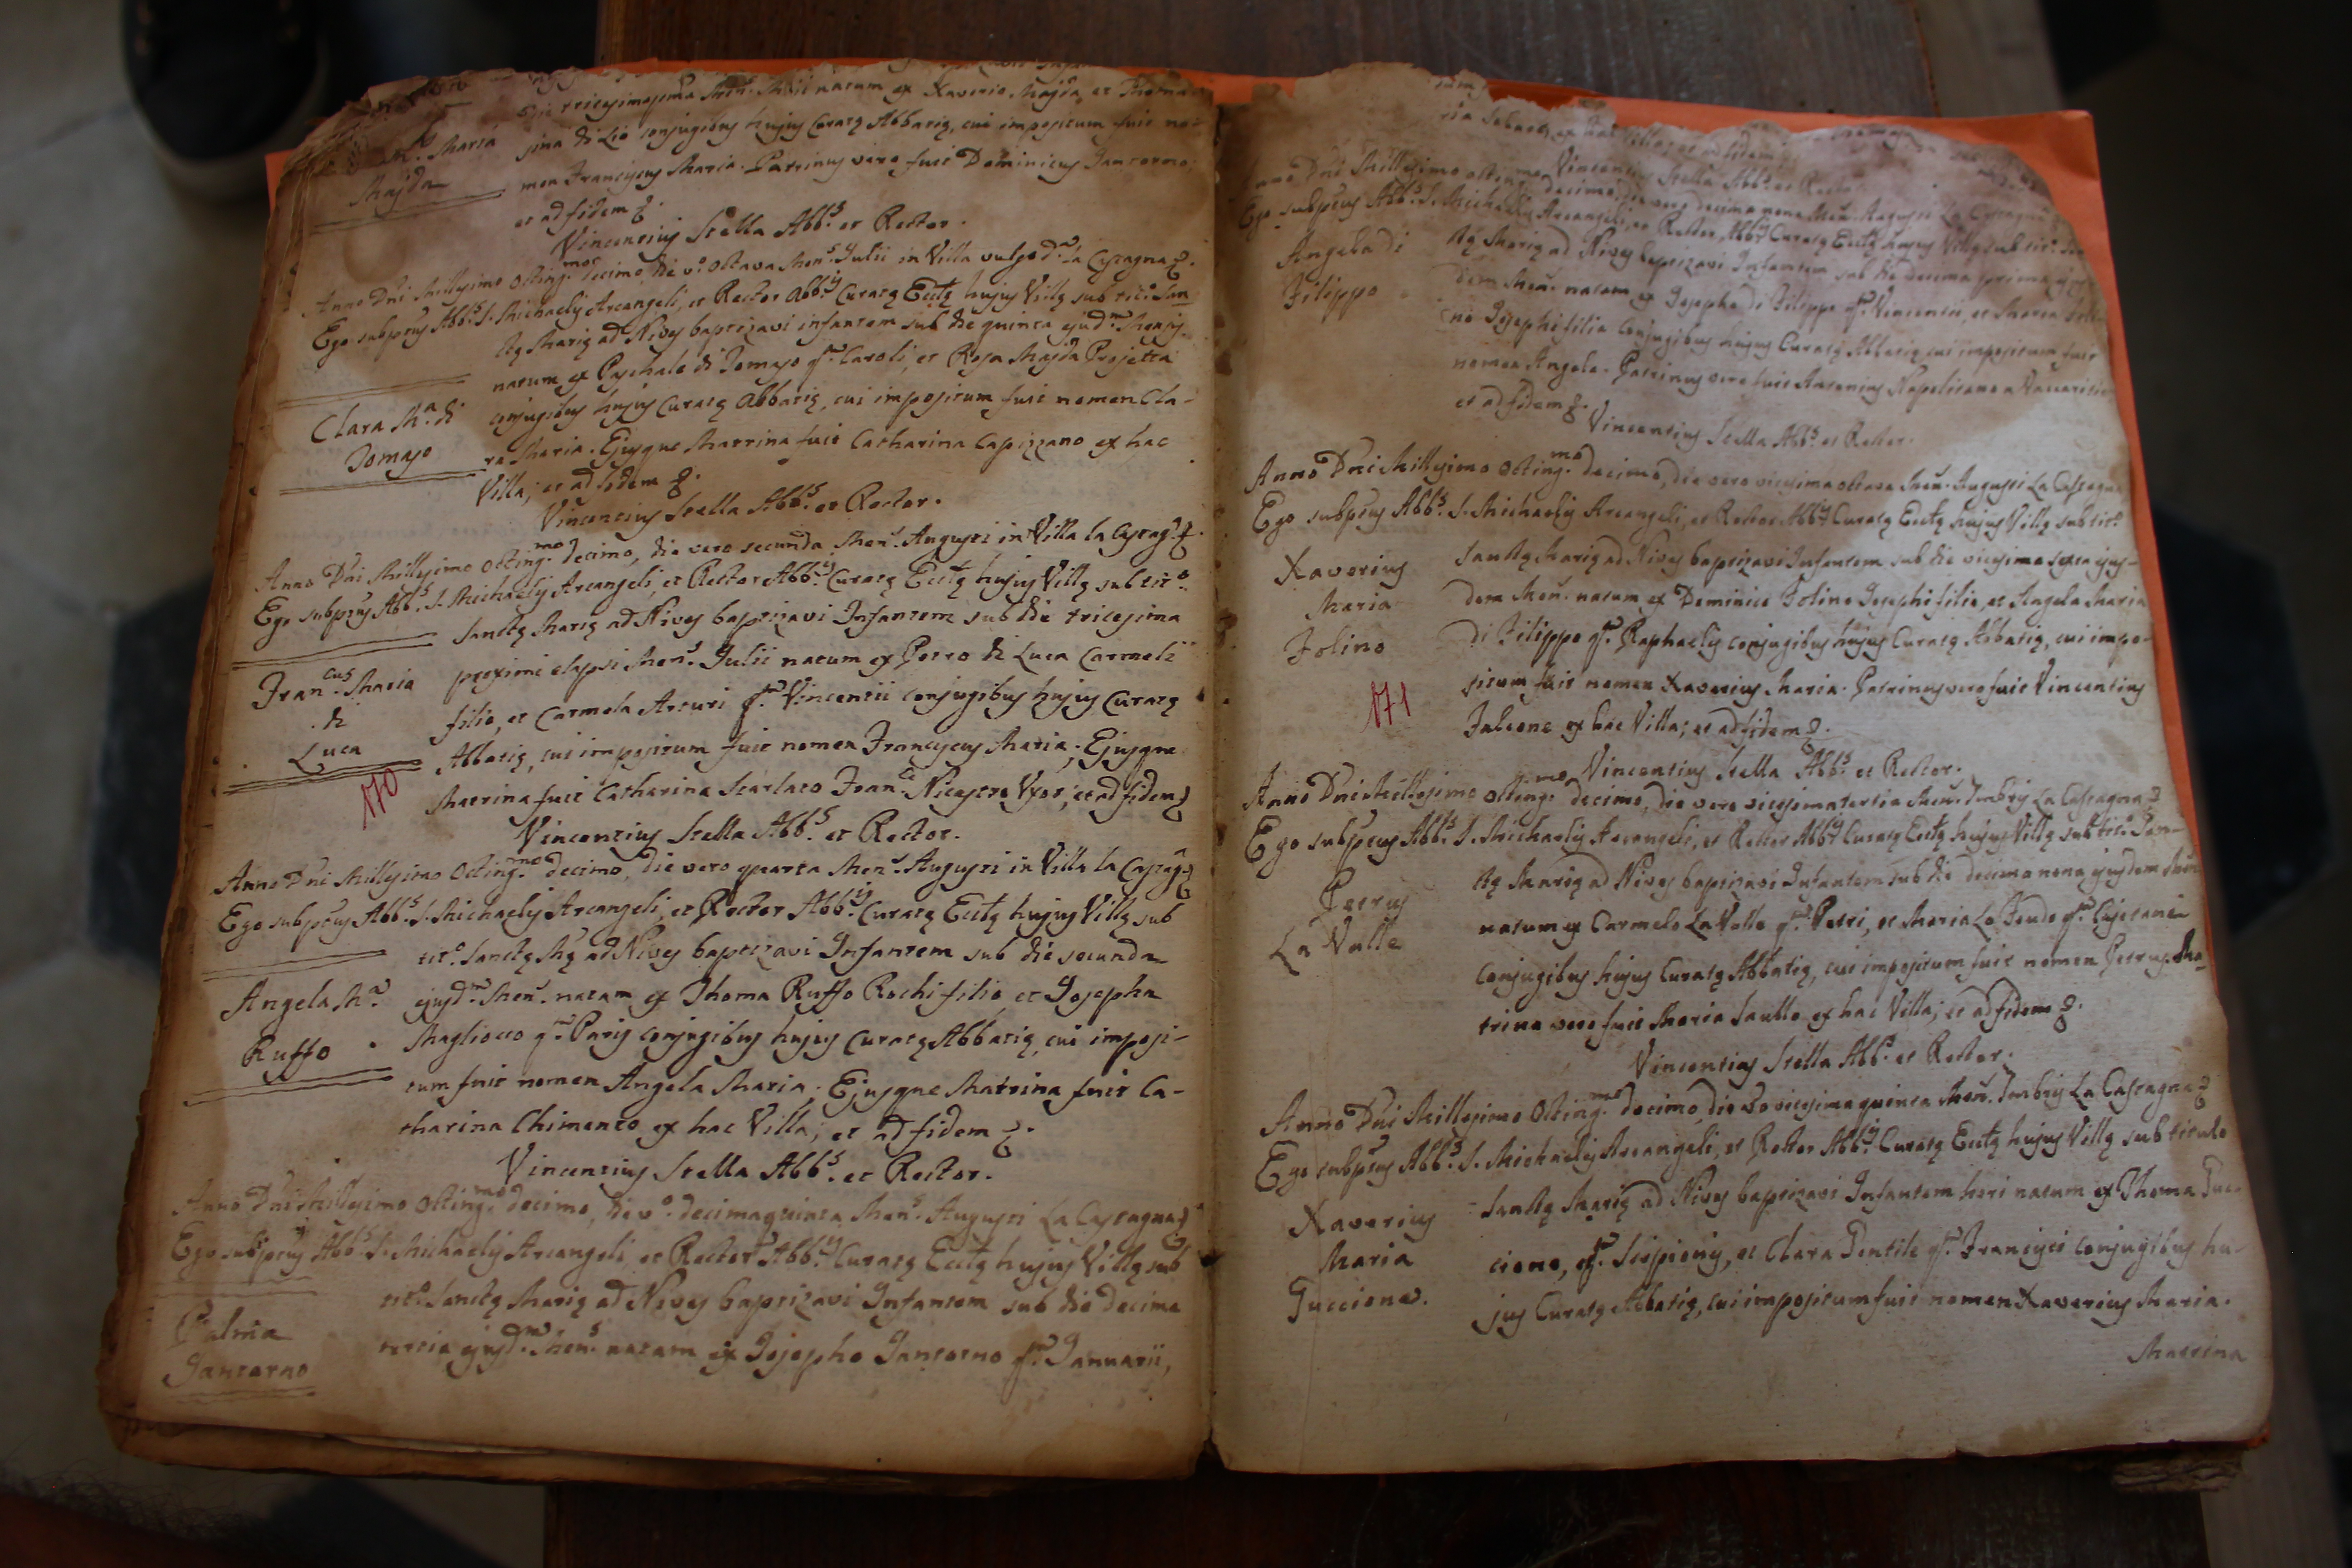 die tricesimaprima Men.s Maii natum ex Xaverio Majda et Thoma-
sina di Lio conjugibus hujus Curatę Abbatię, cui impositum fuit no-
Maria
Majda
men Franciscus Maria. Patrinus vero fuit Dominicus Jantorno;
et ad fidem &.
Vincentius Stella Abb.s et Rector.
Anno Dni Millesimo Octing.mo decimo die v.o octava Men.s Julii in Villa vulgo d.a la Castagna &.
Ego subptus Abb.s S. Michaelis Arcangeli, et Rector Abb.is Curatę Ecctę hujus Villę sub tit.o San
ctę Marię ad Nives baptizavi infantem sub die quinta ejud.m Mensis
natum ex Paschale di Tomaso q.m Caroli, et Rosa Majda Projetta
Clara M.a di
Tomaso
conjugibus hujus Curatę Abbatię, cui impositum fuit nomen Cla-
ra Maria. Ejusque Matrina fuit Catharina Capizzano ex hac
Villa; et ad fidem &.
Vincentius Stella Abb.s et Rector.
Anno Dni Millesimo Octing.mo decimo, die vero secunda Men.s Augusti in Villa la Castag.a &.
Ego subptus Abb.s S. Michaelis Arcangeli, et Rector Abb.is Curatę Ecctę hujus Villę sub tit.o
Sanctę Marię ad Nives baptizavi Infantem sub die tricesima
Fran.cus Maria
di
Luca
170
proximi elapsi Men.s Julii natum ex Petro di Luca Carmeli
filio, et Carmela Arturi q.m Vincentii conjugibus hujus Curatę
Abbatię, cui impositum fuit nomen Franciscus Maria; Ejusque
Matrina fuit Catharina Scarlato Fran.ci Nicastro Uxor; et ad fidem &
Vincentius Stella Abb.s et Rector.
Anno Dni Millesimo Octing.mo decimo, die vero quarta Men.s Augusti in Villa la Castag.a &
Ego subptus Abb.s S. Michaelis Arcangeli, et Rector Abb.is Curatę Ecctę hujus Villę sub
tit.o Sanctę Mę ad Nives baptizavi Infantem sub die secunda
Angela M.a
Ruffo
ejusd.m Men.s natam ex Thoma Ruffo Rochi filio et Josepha
Magliocco q.m Paris conjugibus hujus Curatę Abbatię, cui imposi-
tum fuit nomen Angela Maria; Ejusque Matrina fuit Ca-
tharina Chimento ex hac Villa; et ad fidem &.
Vincentius Stella Abb.s et Rector.
Anno Dni Millesimo Octing.mo decimo, die v.o decimaquinta Men.s Augusti La Castagna &
Ego subptus Abb.s S. Michaelis Arcangeli, et Rector Abb.is Curatę Ecctę hujus Villę sub
tit.o Sanctę Marię ad Nives baptizavi Infantem sub die decima
Palma
Jantorno
tertia ejusd.m Men.s natam ex Josepho Jantorno q.m Januarii,
ex hac Villa; et ad fidem
Vincentius Stella Abb.s et Rector
Dni Millesimo octing.mo decimo, die vero decima nona Men.s Augusti La Castagna
Ego subptus Abb.s S. Michaelis Arcangeli, et Rector Abb.is Curatę Ecctę hujus Villę sub tit.o San
Angela di
Filippo
ctę Marię ad Nives baptizavi Infantem sub die decima prima
dem Men.s natam ex Josepho di Filippo q.m Vincentii, et Maria
no Josephi filia Conjugibus hujus Curatę Abbatię cui impositum fuit
nomen Angela. Patrinus vero fuit Antonius Napolitano
et ad fidem &.
Vincentius Stella Abb.s et Rector.
Anno Dni Millesimo Octing.mo decimo, die vero vicesima octava Men.s Augusti La Castagna
Ego subptus Abb.s S. Michaelis Arcangeli, et Rector Abb.is Curatę Ecctę hujus Villę sub tit.o
Xaverius
Maria
Folino
171
Sanctę Marię ad Nives baptizavi Infantem sub die vicesima sexta ejus-
dem Men.s natum ex Dominico Folino Josephi filio, et Angela Maria
di Filippo q.m Raphaelis conjugibus hujus Curatę Abbatię, cui impo-
situm fuit nomen Xaverius Maria. Patrinus vero fuit Vincentius
Falcone ex hac Villa; et ad fidem &.
Vincentius Stella Abb.s et Rector.
Anno Dni Millesimo Octing.mo decimo, die vero vicesima tertia Men.s 7mbris La Castagna &
Ego subptus Abb.s S. Michaelis Arcangeli, et Rector Abb.is Curatę Ecctę hujus Villę sub tit.o San-
Petrus
La Valle
ctę Marię ad Nives baptizavi Infantem sub die decima nona ejusdem Men.s
natum ex Carmelo La Valle q.m Petri, et Maria Lo Feudo q.m Cajetani
Conjugibus hujus Curatę Abbatię, cui impositum fuit nomen Petrus. Ma-
trina vero fuit Maria Saullo ex hac Villa; et ad fidem &.
Vincentius Stella Abb.s et Rector.
Anno Dni Millesimo Octing.mo decimo, die vo vicesima quinta Men.s 7mbris La Castagna &
Ego subptus Abb.s S. Michaelis Arcangeli, et Rector Abb.is Curatę Ecctę hujus Villę sub titulo
Xaverius
Maria
Guccione.
Sanctę Marię ad Nives baptizavi Infantem heri natum ex Thoma Guc-
cione, q.m Scipionis, et Clara Gentile q.m Francisci conjugibus hu-
jus Curatę Abbatię, cui impositum fuit nomen Xaverius Maria.
Matrina